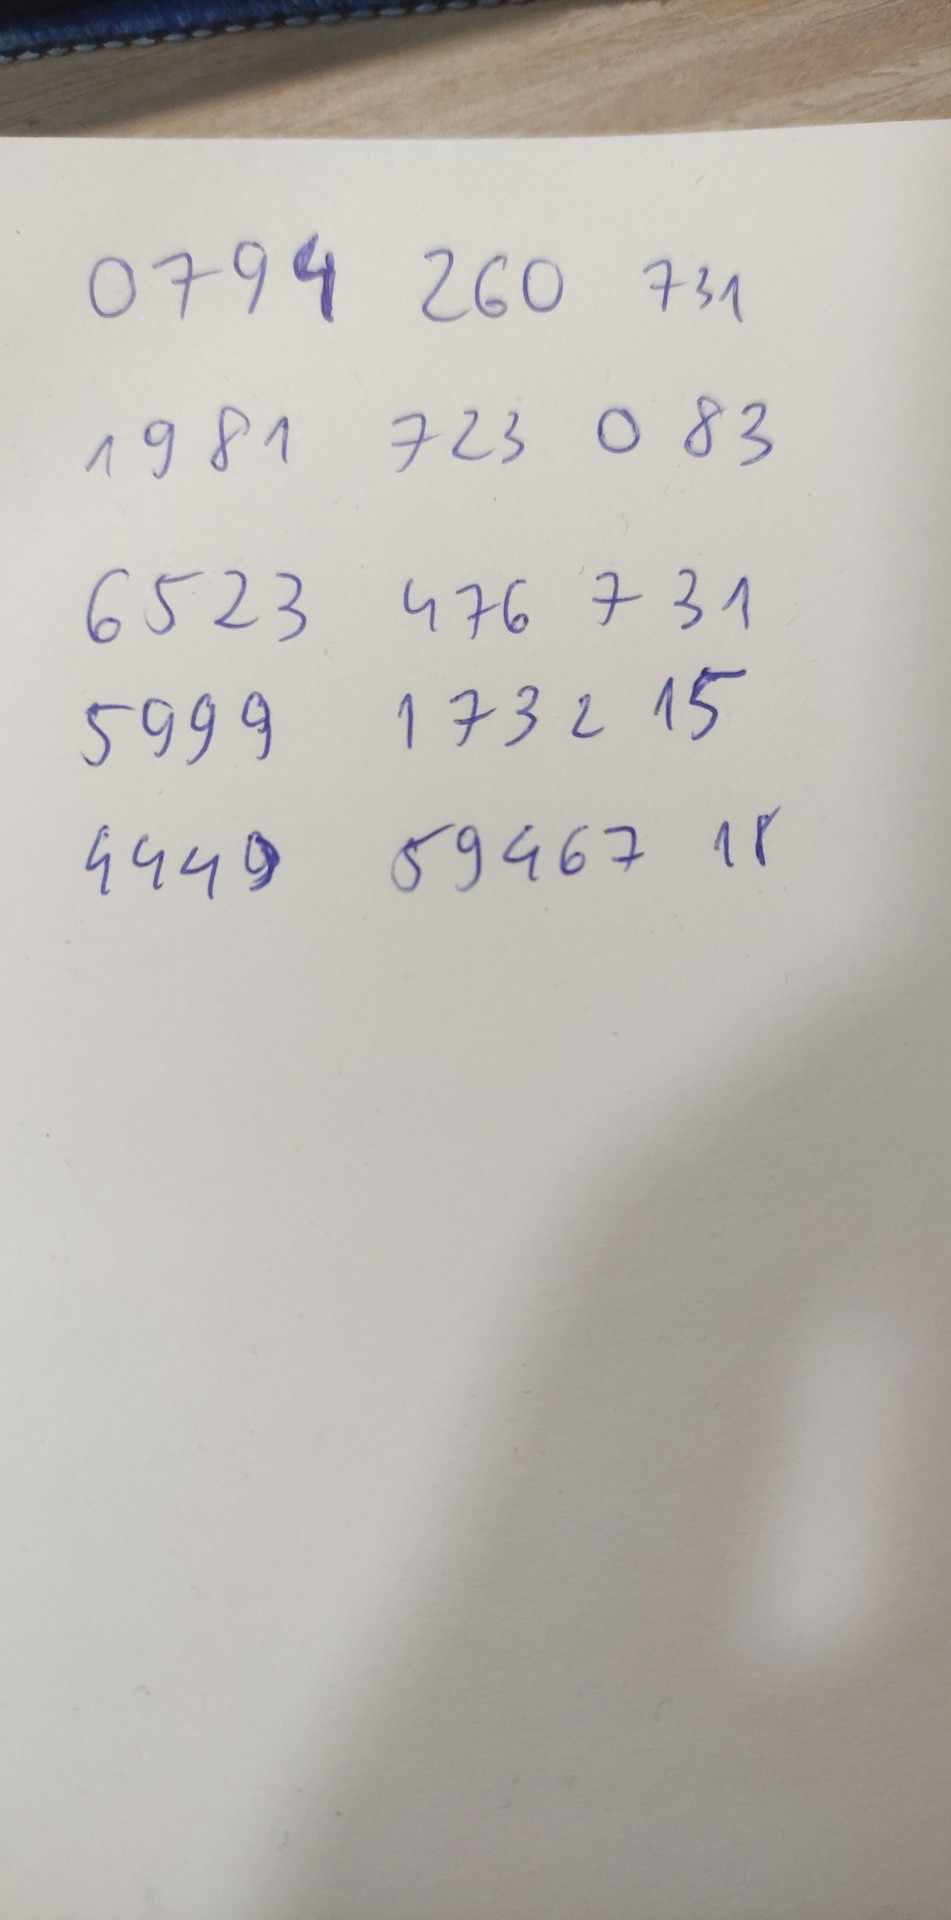 0794 260 731
1981 723 0 83
6523 476 7 31
5999 1732 15
4449 59467 18